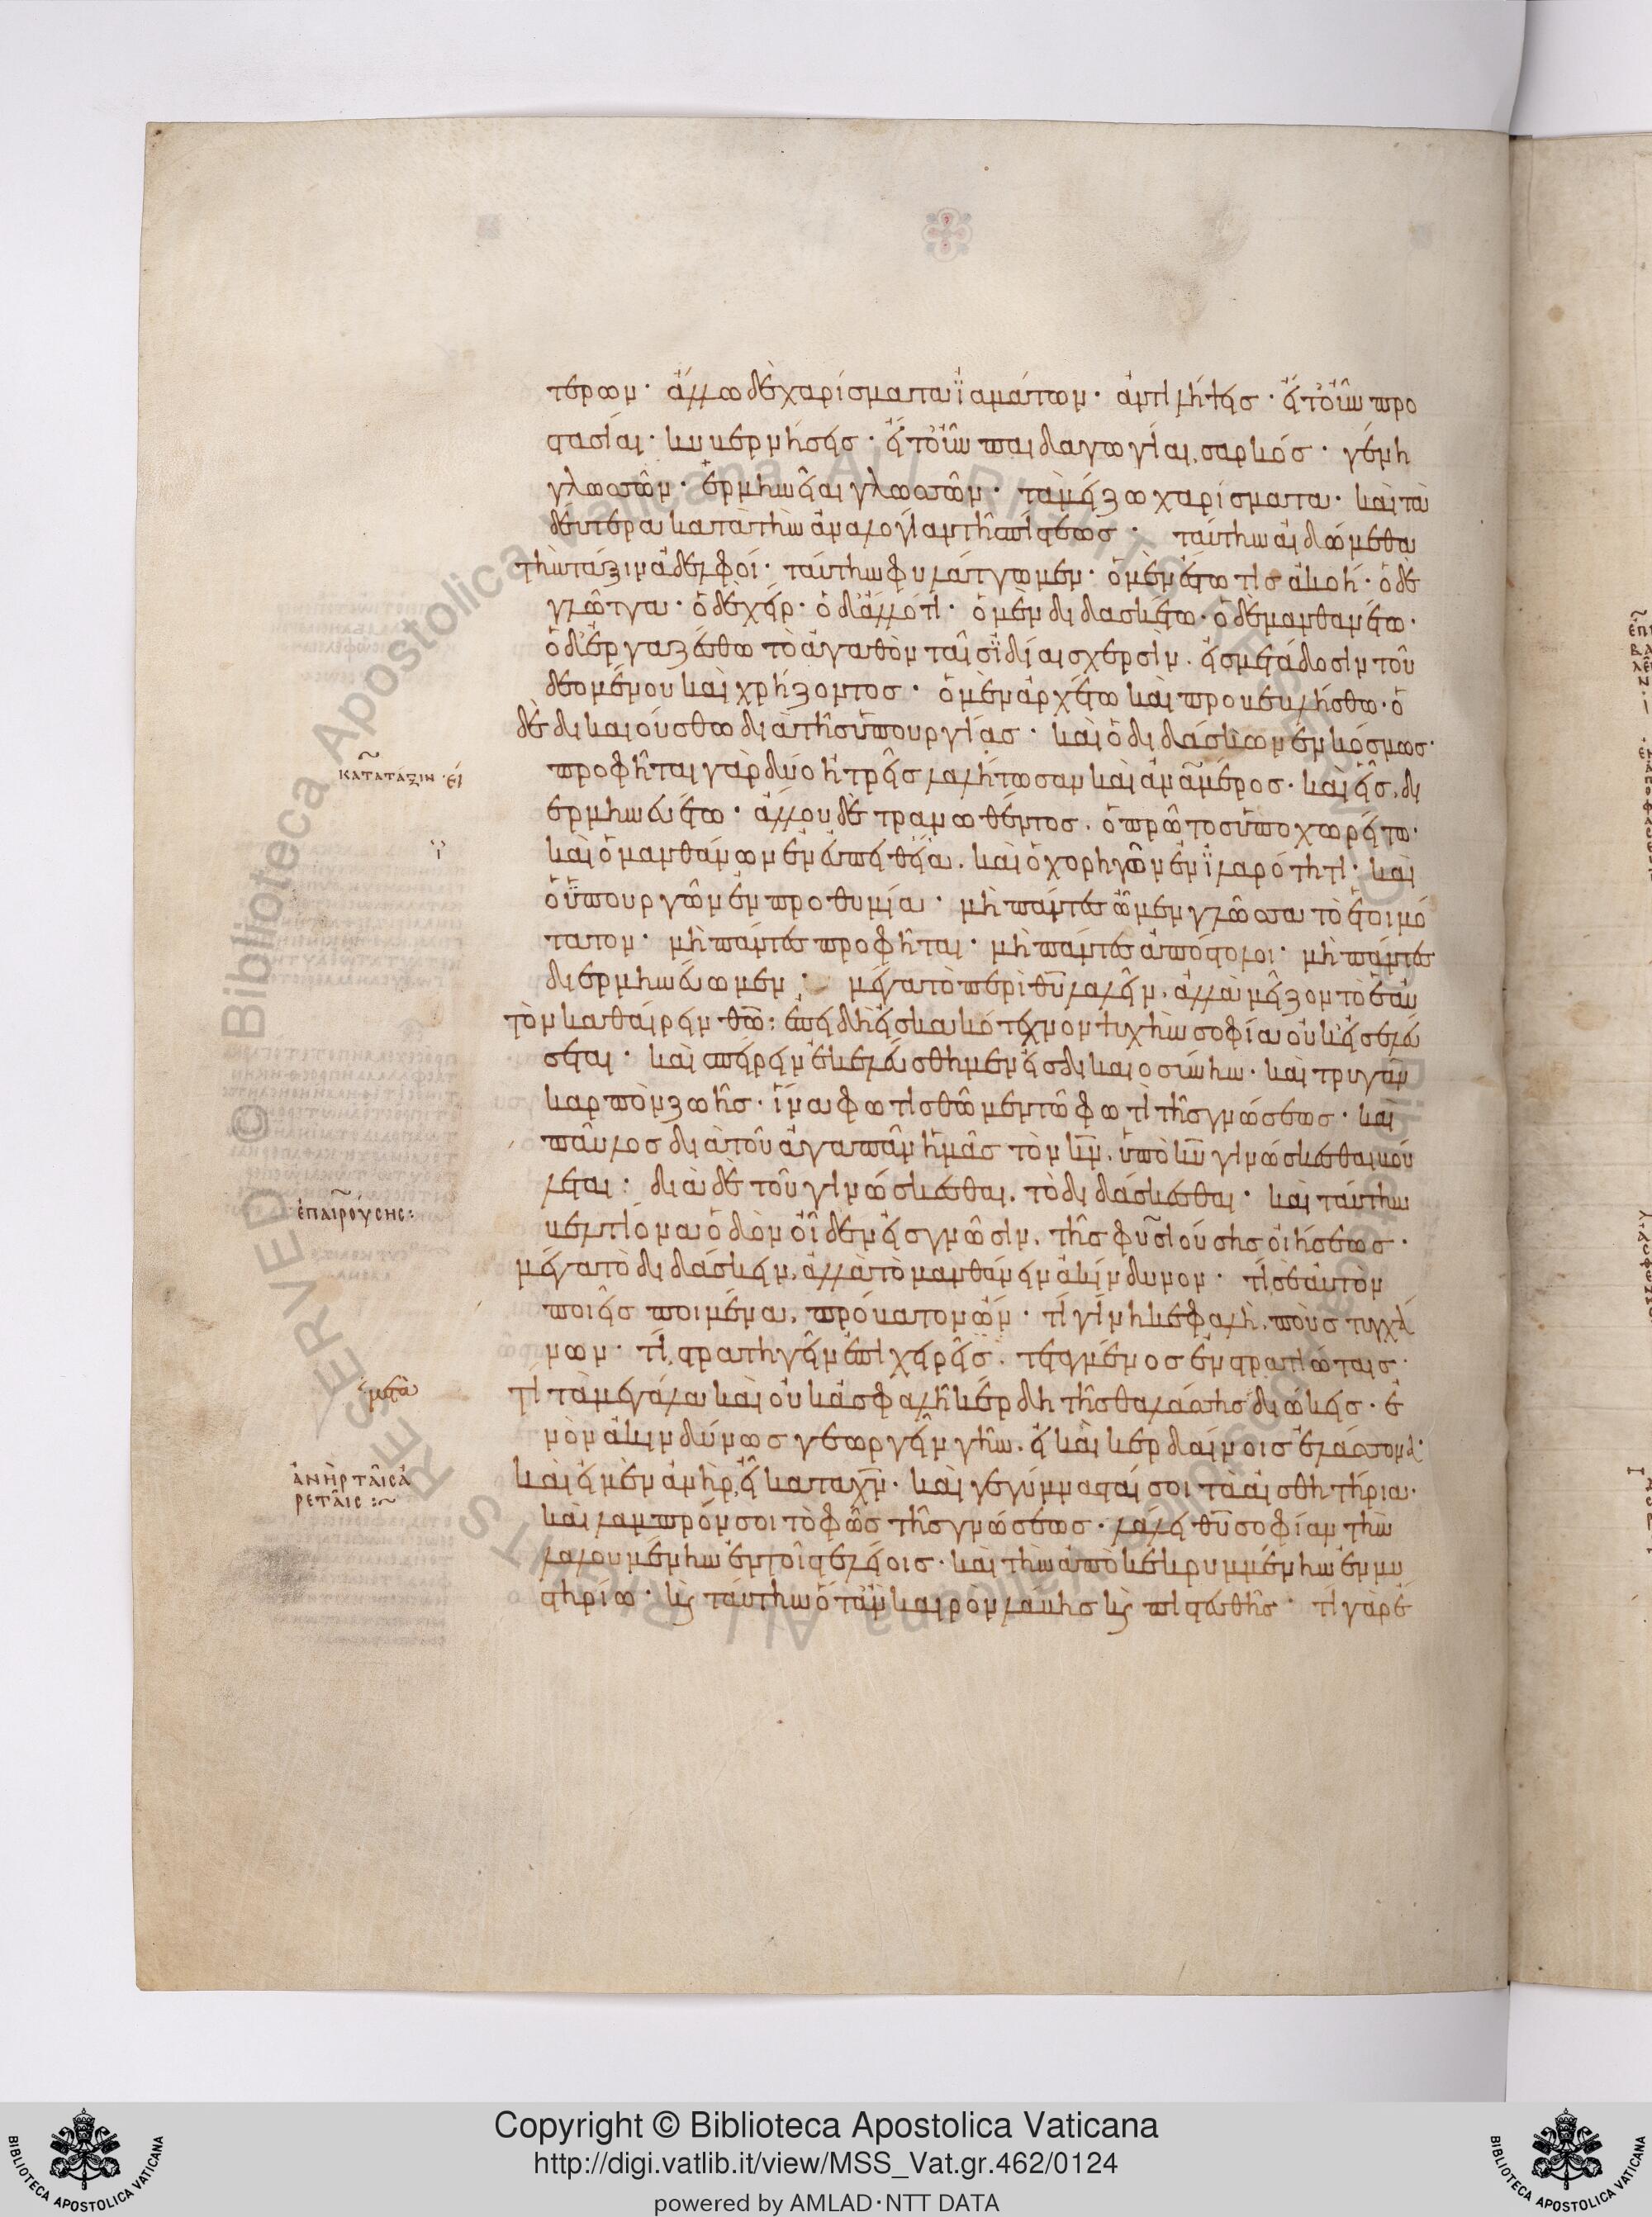 τέρων· ἄλλω δὲ χαρίσματα ἰαμάτων· ἀντιλήψεις· εἴτουν προ
στασίαι· κυβερνήσεις· εἴτουν παιδαγωγίαι σαρκός· γένη
γλωσσῶν· ἑρμηνεῖαι γλωσσῶν· τὰ μείζω χαρίσματα· καὶ τὰ
δεύτερα κατὰ τὴν ἀναλογίαν τῆς πίστεως· ταύτην αἰδώμεθα
τὴν τάξιν ἀδελφοί· ταύτην φυλάττωμεν· ὁ μὲν ἔστω τις ἀκοή· ὁ δὲ
γλῶττα· ὁ δὲ χείρ· ὁ δὲ ἄλλό τι· ὁ μὲν διδασκέτω· ὁ δὲ μανθανέτω·
ὁ δὲ ἐργαζέσθω τὸ ἀγαθὸν ταῖς ἰδίαις χερσὶν· εἰς μετάδοσιν τοῦ
δεομένου καὶ χρήζοντος· ὁ μὲν ἀρχέτω καὶ προβεβλήσθω· ὁ
δὲ δικαιούσθω διὰ τῆς ὑπουργίας· καὶ ὁ διδάσκων ἐν κόσμως·
προφῆται γὰρ δύο ἢ τρεῖς λαλήτωσαν καὶ ἀνα μέρος· καὶ εἷς δι
ερμηνευέτω· ἄλλου δὲ τρανωθέντος· ὁ πρῶτος ὑποχωρείτω·
καὶ ὁ μανθάνων ἐν εὐπειθείᾳ· καὶ ὁ χορηγῶν ἐν ἱλαρότητι· καὶ
ὁ ὑπουργῶν ἐν προθυμίᾳ· μὴ πάντες ὦμεν γλῶσσα τὸ ἑτοιμό
τατον· μὴ πάντες προφῆται· μὴ πάντες ἀπόστολοι· μὴ πάντες
διερμηνεύωμεν· μέγα τὸ περὶ θυ λαλεῖν, ἀλλὰ μεῖζον τὸ ἑαυ
τὸν καθαίρειν θω· ἐπειδὴ εἰς κακότεχνον ψυχὴν σοφία οὐκ εἰσελεύ
σεται· καὶ σπείρειν ἐκελεύσθημεν εἰς δικαιοσύνην· καὶ τρυγᾶν
καρπὸν ζωῆς· ἵνα φωτισθῶμεν τῷ φωτὶ τῆς γνώσεως· καὶ
παῦλος διὰ τοῦ ἀγαπᾶν ἡμᾶς τὸν κν, ὑπὸ κυ γινώσκεσθαι βού
λεται· διὰ δὲ τοῦ γινώσκεσθαι, τὸ διδάσκεσθαι· καὶ ταύτην
βελτίονα ὁδὸν οἶδεν εἰς γνῶσιν, τῆς φυσιούσης οἰήσεως·
μέγα τὸ διδάσκειν, ἀλλὰ τὸ μανθάνειν ἀκίνδυνον· τί σεαυτὸν
ποιεῖς ποιμένα, πρόβατον ὤν· τί γίνη κεφαλὴ, ποὺς τυγχά
νων· τί στρατηγεῖν ἐπιχειρεῖς, τεταγμένος ἐν στρατιώταις·
τί τὰ μεγάλα καὶ οὐκ ἀσφαλῆ κέρδη τῆς θαλάσσης διώκεις· ἐ
νὸν ἀκινδύνως γεωργεῖν γῆν, εἰ καὶ κερδαίνοις ἐλάσσονα·
καὶ εἰ μὲν ἀνὴρ εἶ κατα χν· καὶ γεγύμνασταί σοι τὰ αἰσθητήρια·
καὶ λαμπρόν σοι τὸ φῶς τῆς γνώσεως· λάλει θυ σοφίαν τὴν
λαλουμένην ἐν τοῖς τελείοις· καὶ τὴν ἀποκεκρυμμένην ἐν μυ
στηρίω· κ(αὶ) ταύτην ὅταν καιρὸν λάβης κ(αὶ) πιστευθῆς· τί γὰρ ἔ
κατὰ τάξιν
ἐπαιρούσης:
μετὰ
ἀνὴρ ταῖς ἀ
ρεταῖς:~
© Biblioteca Apostolica Vaticana ALL RIGHTS RESERVED
Copyright © Biblioteca Apostolica Vaticana
http://digi.vatlib.it/view/MSS_Vat.gr.462/0124
powered by AMLAD·NTT DATA
BIBLIOTECA APOSTOLICA VATICANA
BIBLIOTECA APOSTOLICA VATICANA